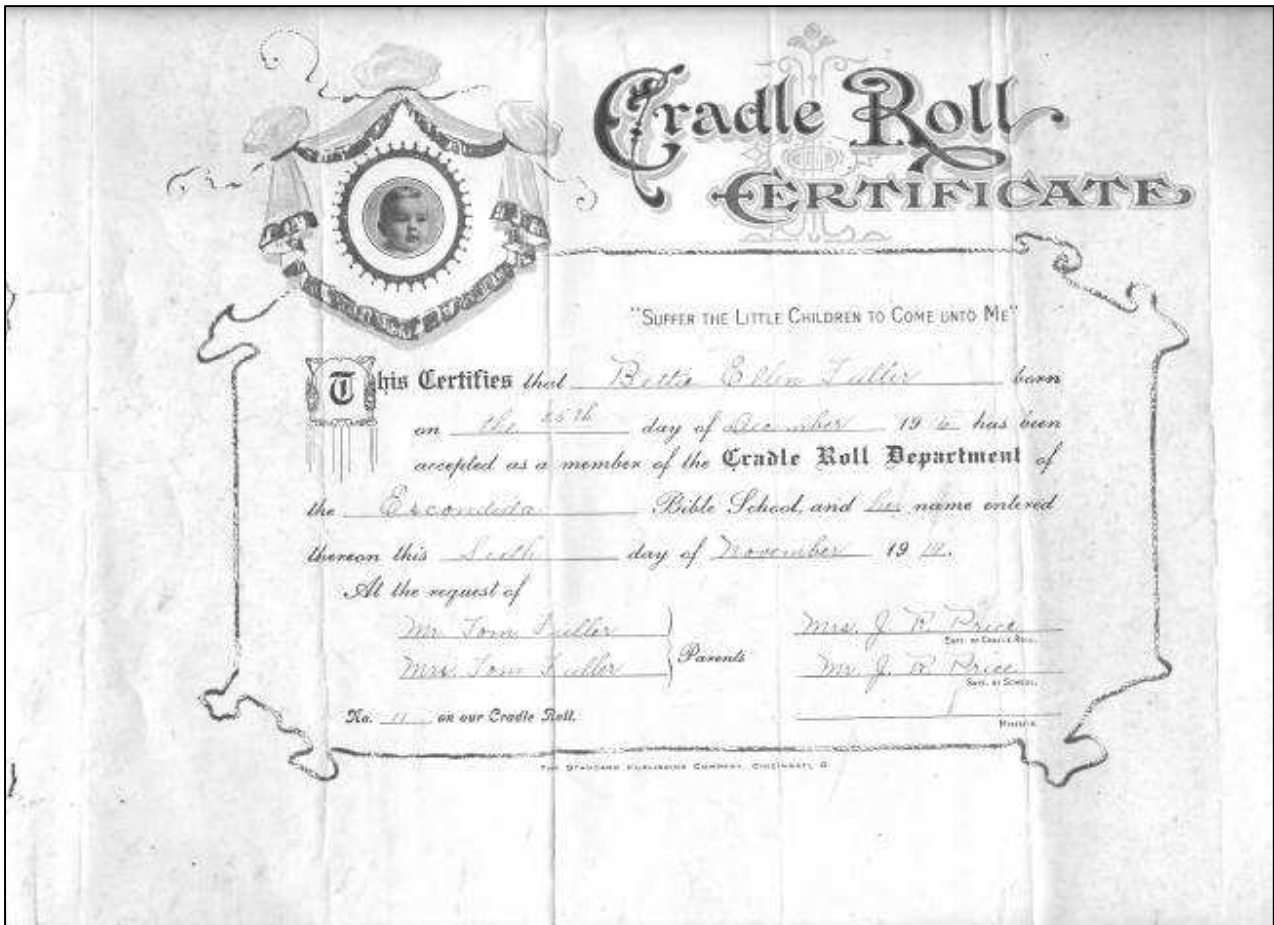 Cradle Roll
CERTIFICATE
"SUFFER THE LITTLE CHILDREN TO COME UNTO ME"
This Certifies that Bettie Ellen Fuller born
on the 25th day of December 19 has been
accepted as a member of the Cradle Roll Department of
the Escondida Bible School, and her name entered
thereon this day of November 19
At the request of
Mr Tom Fuller
Mrs. Tom Fuller
Parents
Mrs. J. R. Price
SUPT. OF CRADLE ROLL.
Mr. J. R. Price
SUPT. OF SCHOOL.
No. 11 on our Cradle Roll.
THE STANDARD PUBLISHING COMPANY, CINCINNATI, O.